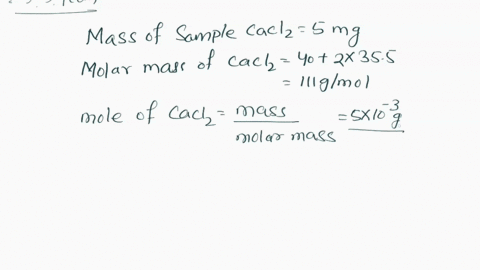 Mass of Sample CaCl2 = 5 mg
Molar mass of CaCl2 = 40 + 2X35.5
= 111g/mol
mole of CaCl2 = mass / molar mass = 5X10^-3 g